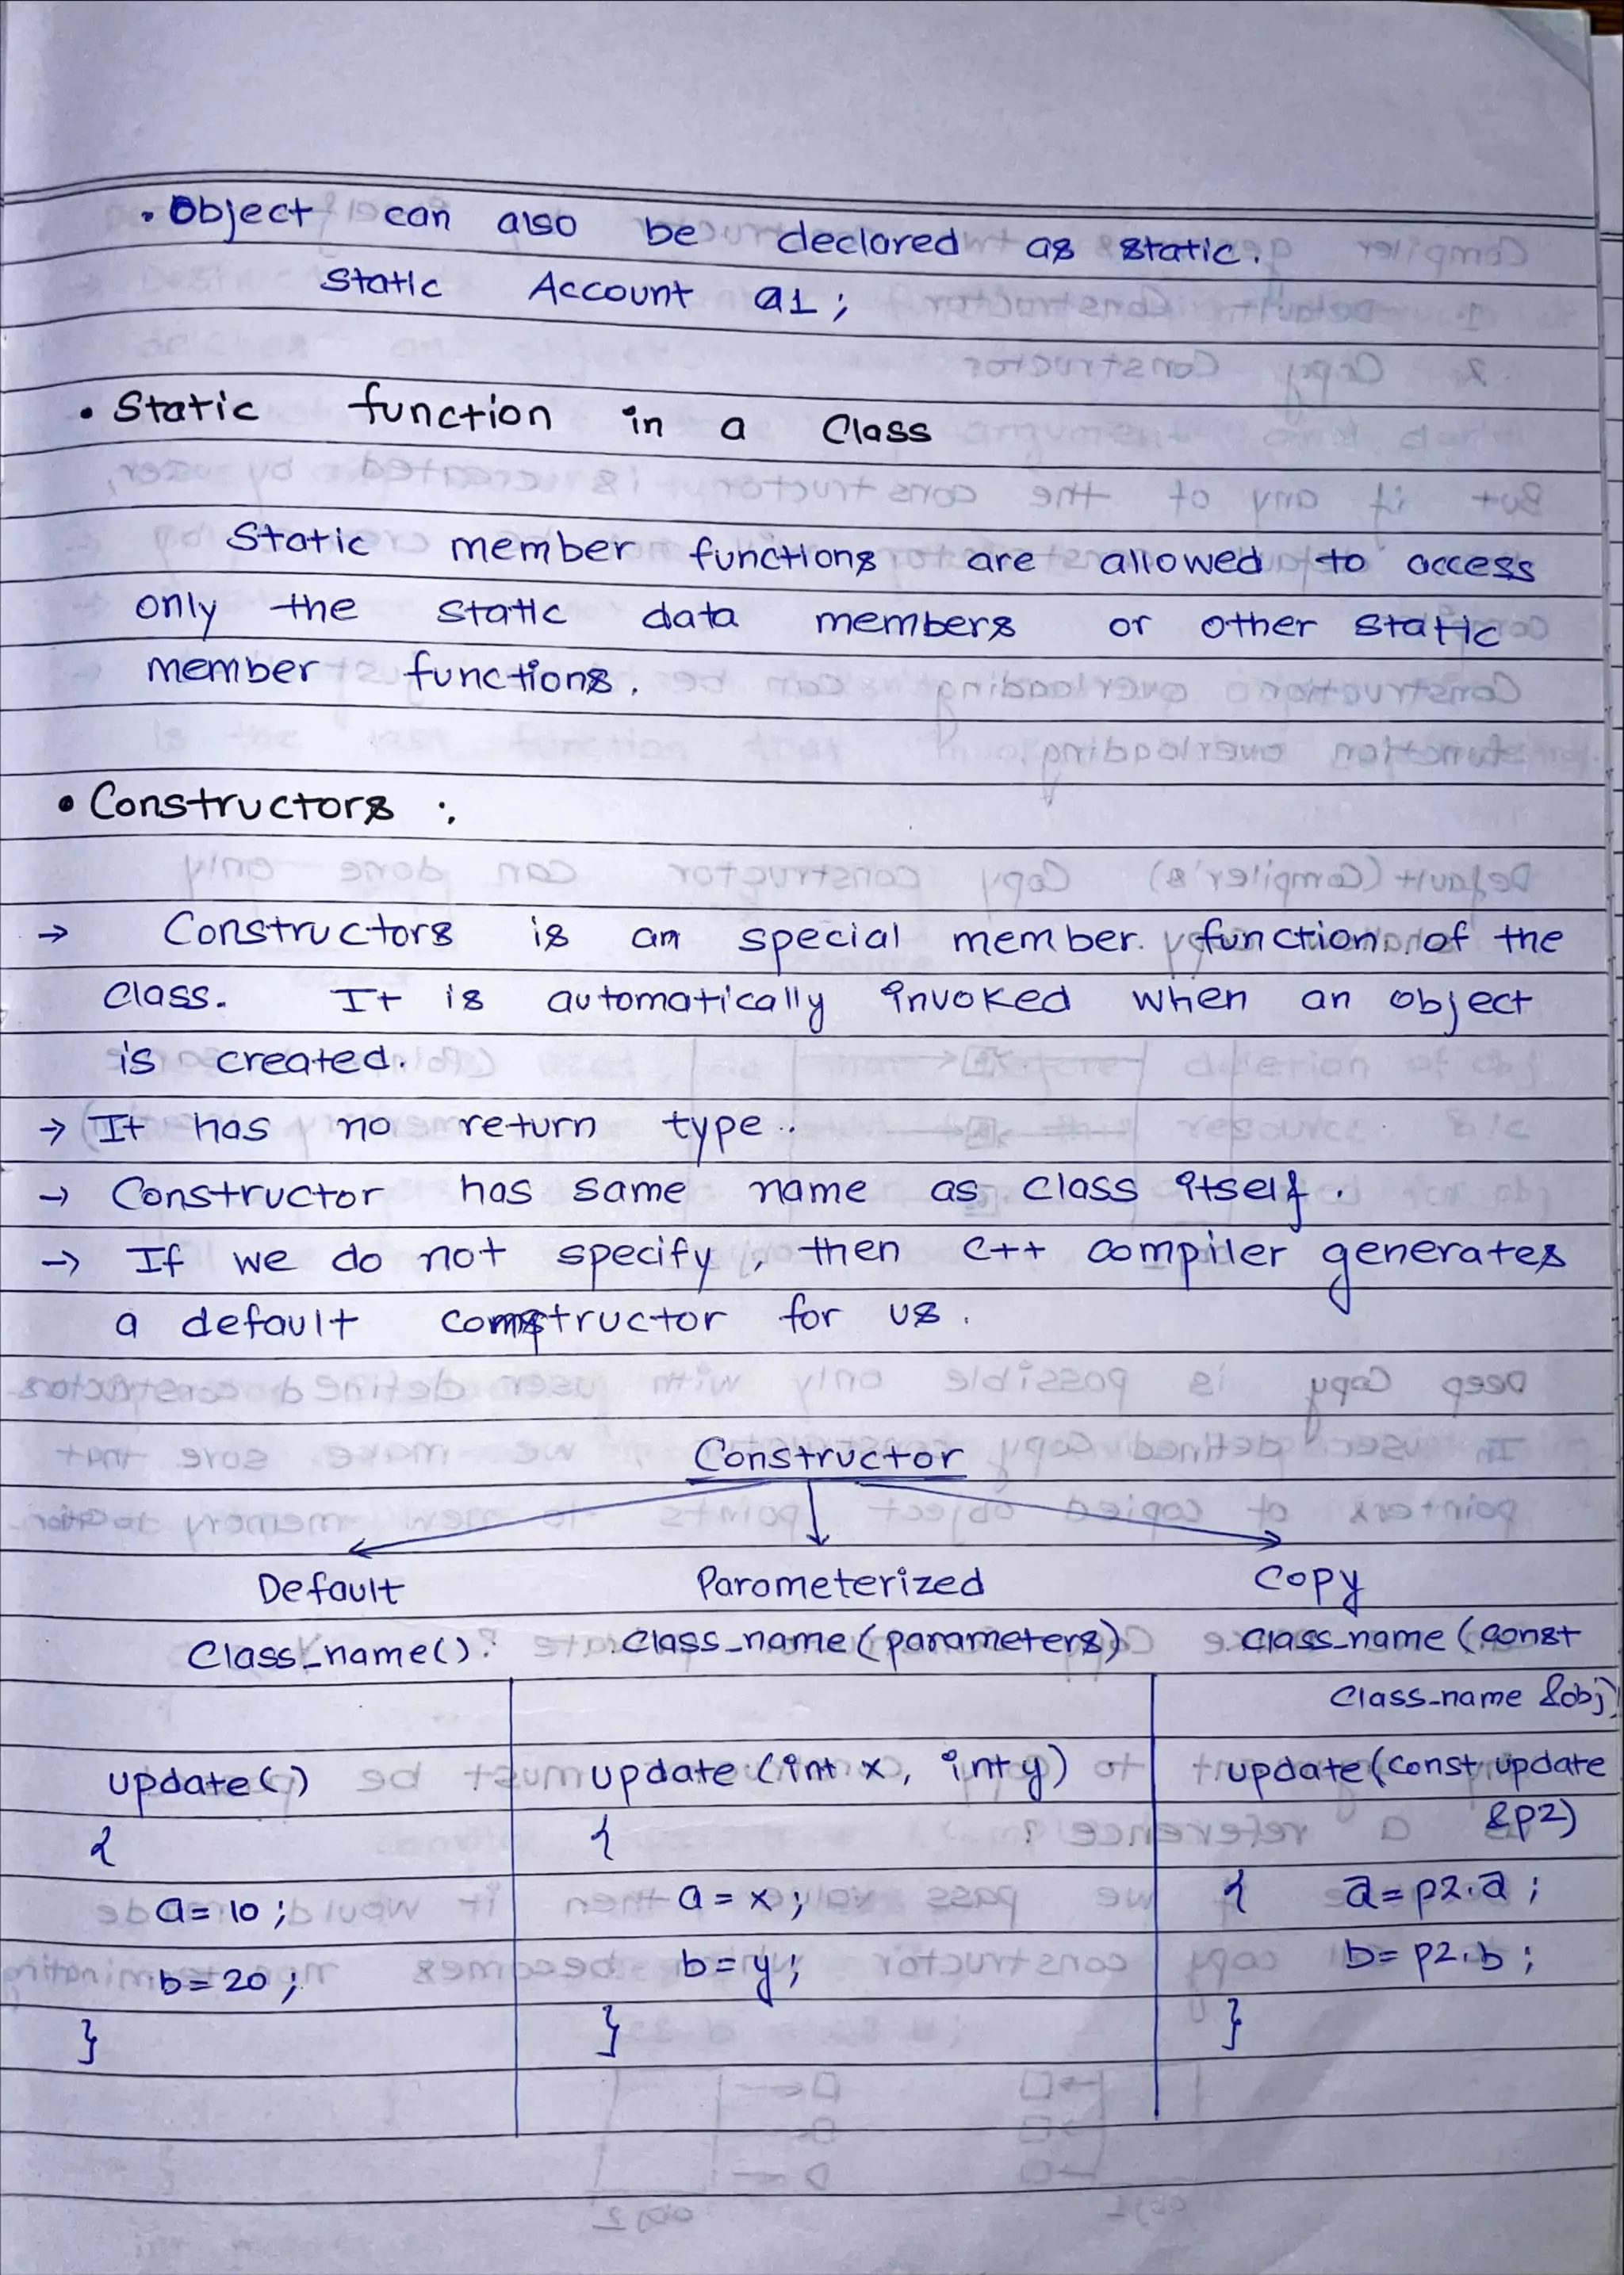 • Object can also be declared as static.
Static Account a1;
• Static function in a Class
Static member functions are allowed to access
only the static data members or other static
member functions.
• Constructors :
→ Constructors is an special member function of the
Class. It is automatically invoked when an object
is created.
→ It has no return type.
→ Constructor has same name as class itself.
→ If we do not specify, then C++ compiler generates
a default constructor for us.
Constructor
Default Parameterized Copy
Class_name() Class_name(parameters) Class_name(const
Class_name &obj)
update() update(int x, int y) update(const update
&p2)
{ {
a=10; a=x; { a=p2.a;
b=20; b=y; b=p2.b;
} } }